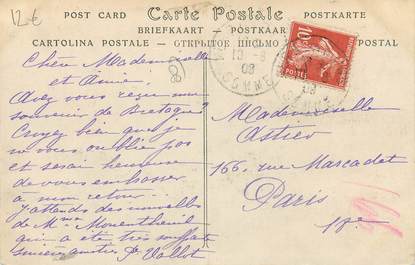 12€
POST CARD Carte Postale POSTKARTE
BRIEFKAART - POSTKAAR
CARTOLINA POSTALE - ОТКРЫТОЕ ПИСЬМО POSTAL
10
POSTES
08
SOMME
08
Chère Mademoiselle
et Amie
Avez vous reçu mon
souvenir de Bretagne?
Croyez bien que je
ne vous oublie pas
et serai heureuse
de vous embrasser
à mon retour
J'attends des nouvelles
de Mme
qui a été très souffrante
Vallot
Mademoiselle
Astier
166, rue Marcadet
Paris
18e